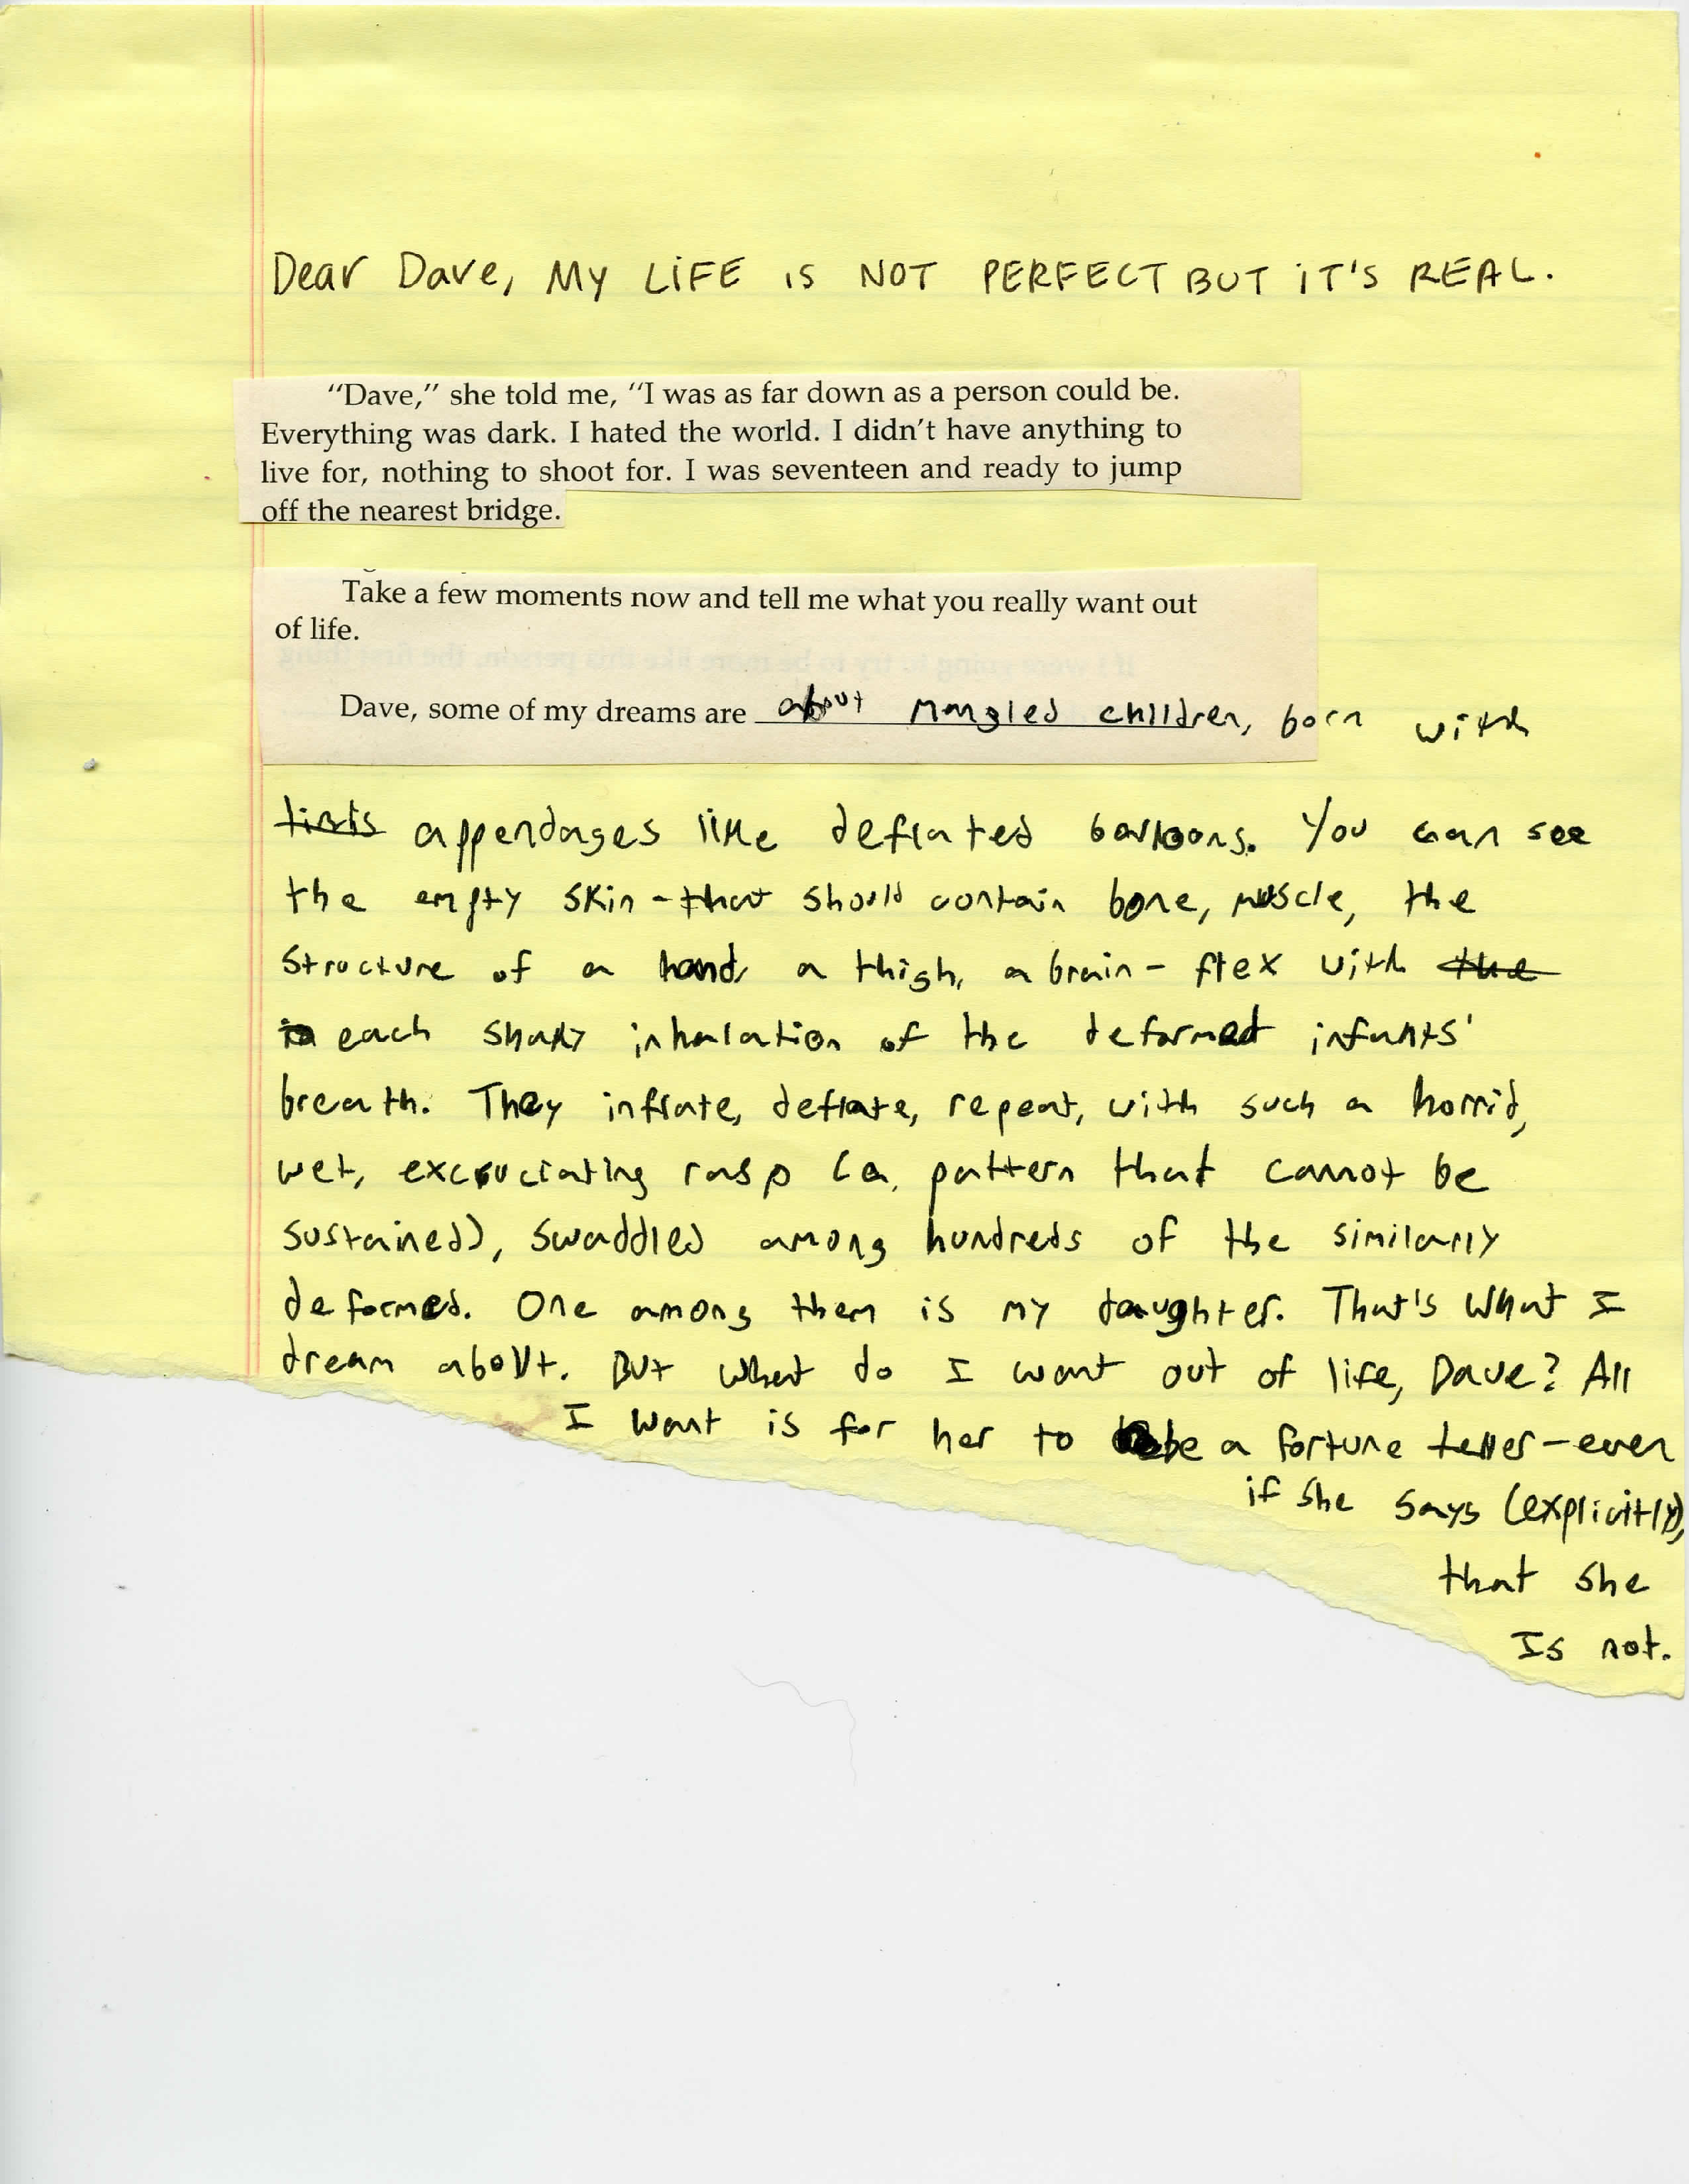 Dear Dave, MY LiFE iS NOT PERFECT BUT iT'S REAL.
"Dave," she told me, "I was as far down as a person could be.
Everything was dark. I hated the world. I didn't have anything to
live for, nothing to shoot for. I was seventeen and ready to jump
off the nearest bridge.
Take a few moments now and tell me what you really want out
of life.
Dave, some of my dreams are about mangled children, born with
appendages like deflated balloons. You can see
the empty skin - that should contain bone, muscle, the
structure of a hand, a thigh, a brain - flex with the
each shaky inhalation of the deformed infants'
breath. They inflate, deflate, repeat, with such a horrid,
wet, excruciating rasp (a pattern that cannot be
sustained), swaddled among hundreds of the similarly
deformed. One among them is my daughter. That's what I
dream about. But what do I want out of life, Dave? All
I want is for her to be a fortune teller - even
if she says (explicitly),
that she
Is not.